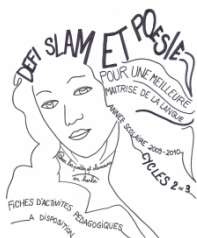 DEFI SLAM ET POESIE
POUR UNE MEILLEURE
MAITRISE DE LA LANGUE
ANNEE SCOLAIRE 2009-2010
CYCLES 2 ET 3
FICHES D'ACTIVITES PEDAGOGIQUES
A DISPOSITION